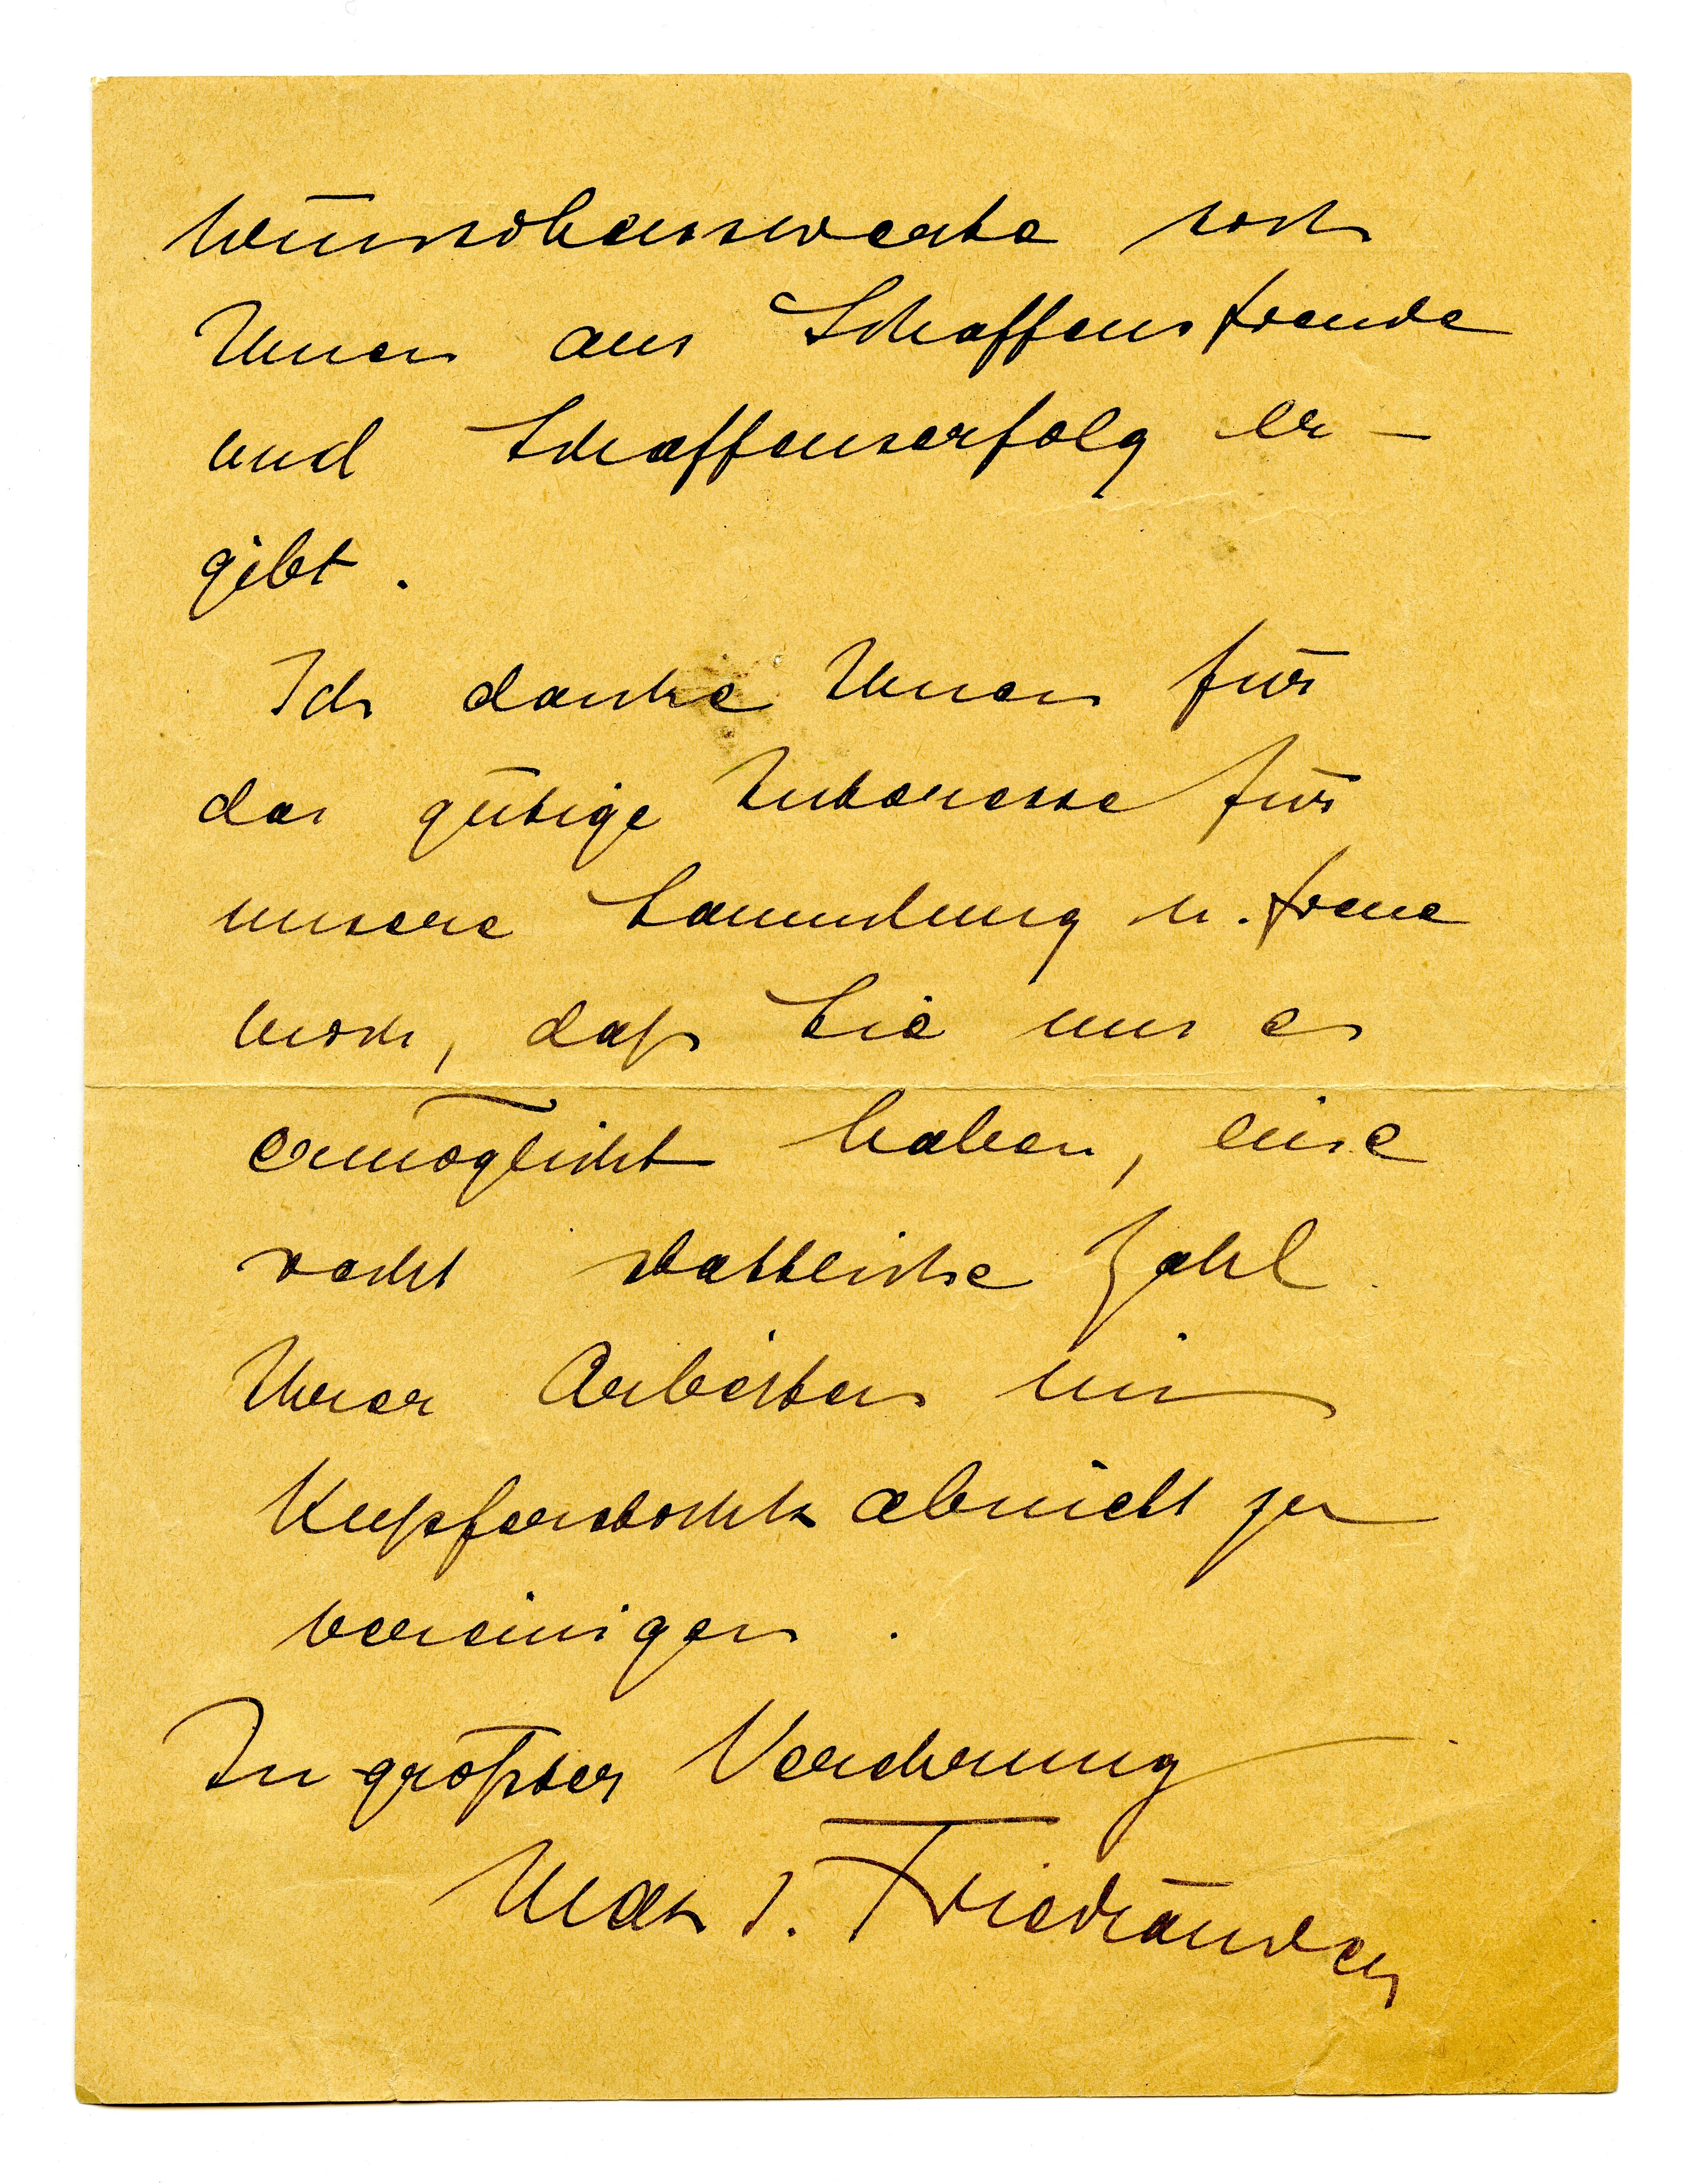 wünschenswerte sich
Ihnen aus Schaffensfreude
und Schaffenserfolg er-
gibt.
Ich danke Ihnen für
das gütige Interesse für
unsere Sammlung u. freue
mich, daß Sie uns es
ermöglicht haben, eine
recht stattliche Zahl
Ihrer Arbeiten im
Kupferstichkabinett zu
vereinigen.
In größter Verehrung
Max J. Friedländer